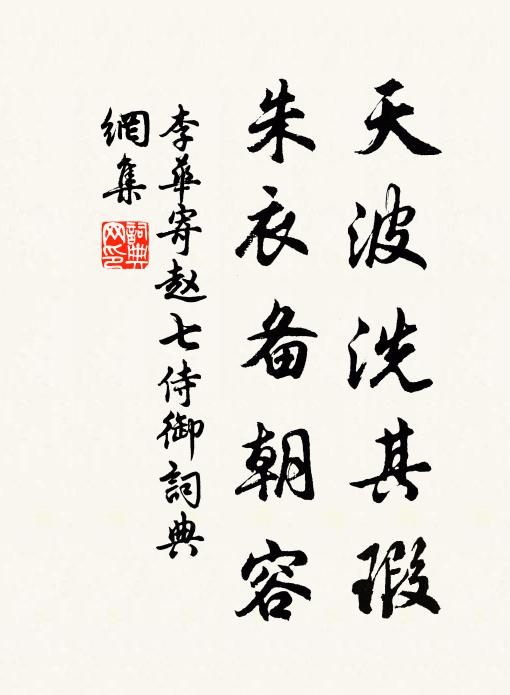 天波洗其瑕
朱衣备朝容
李華寄赵七侍御詞典
網集
詞典
网印